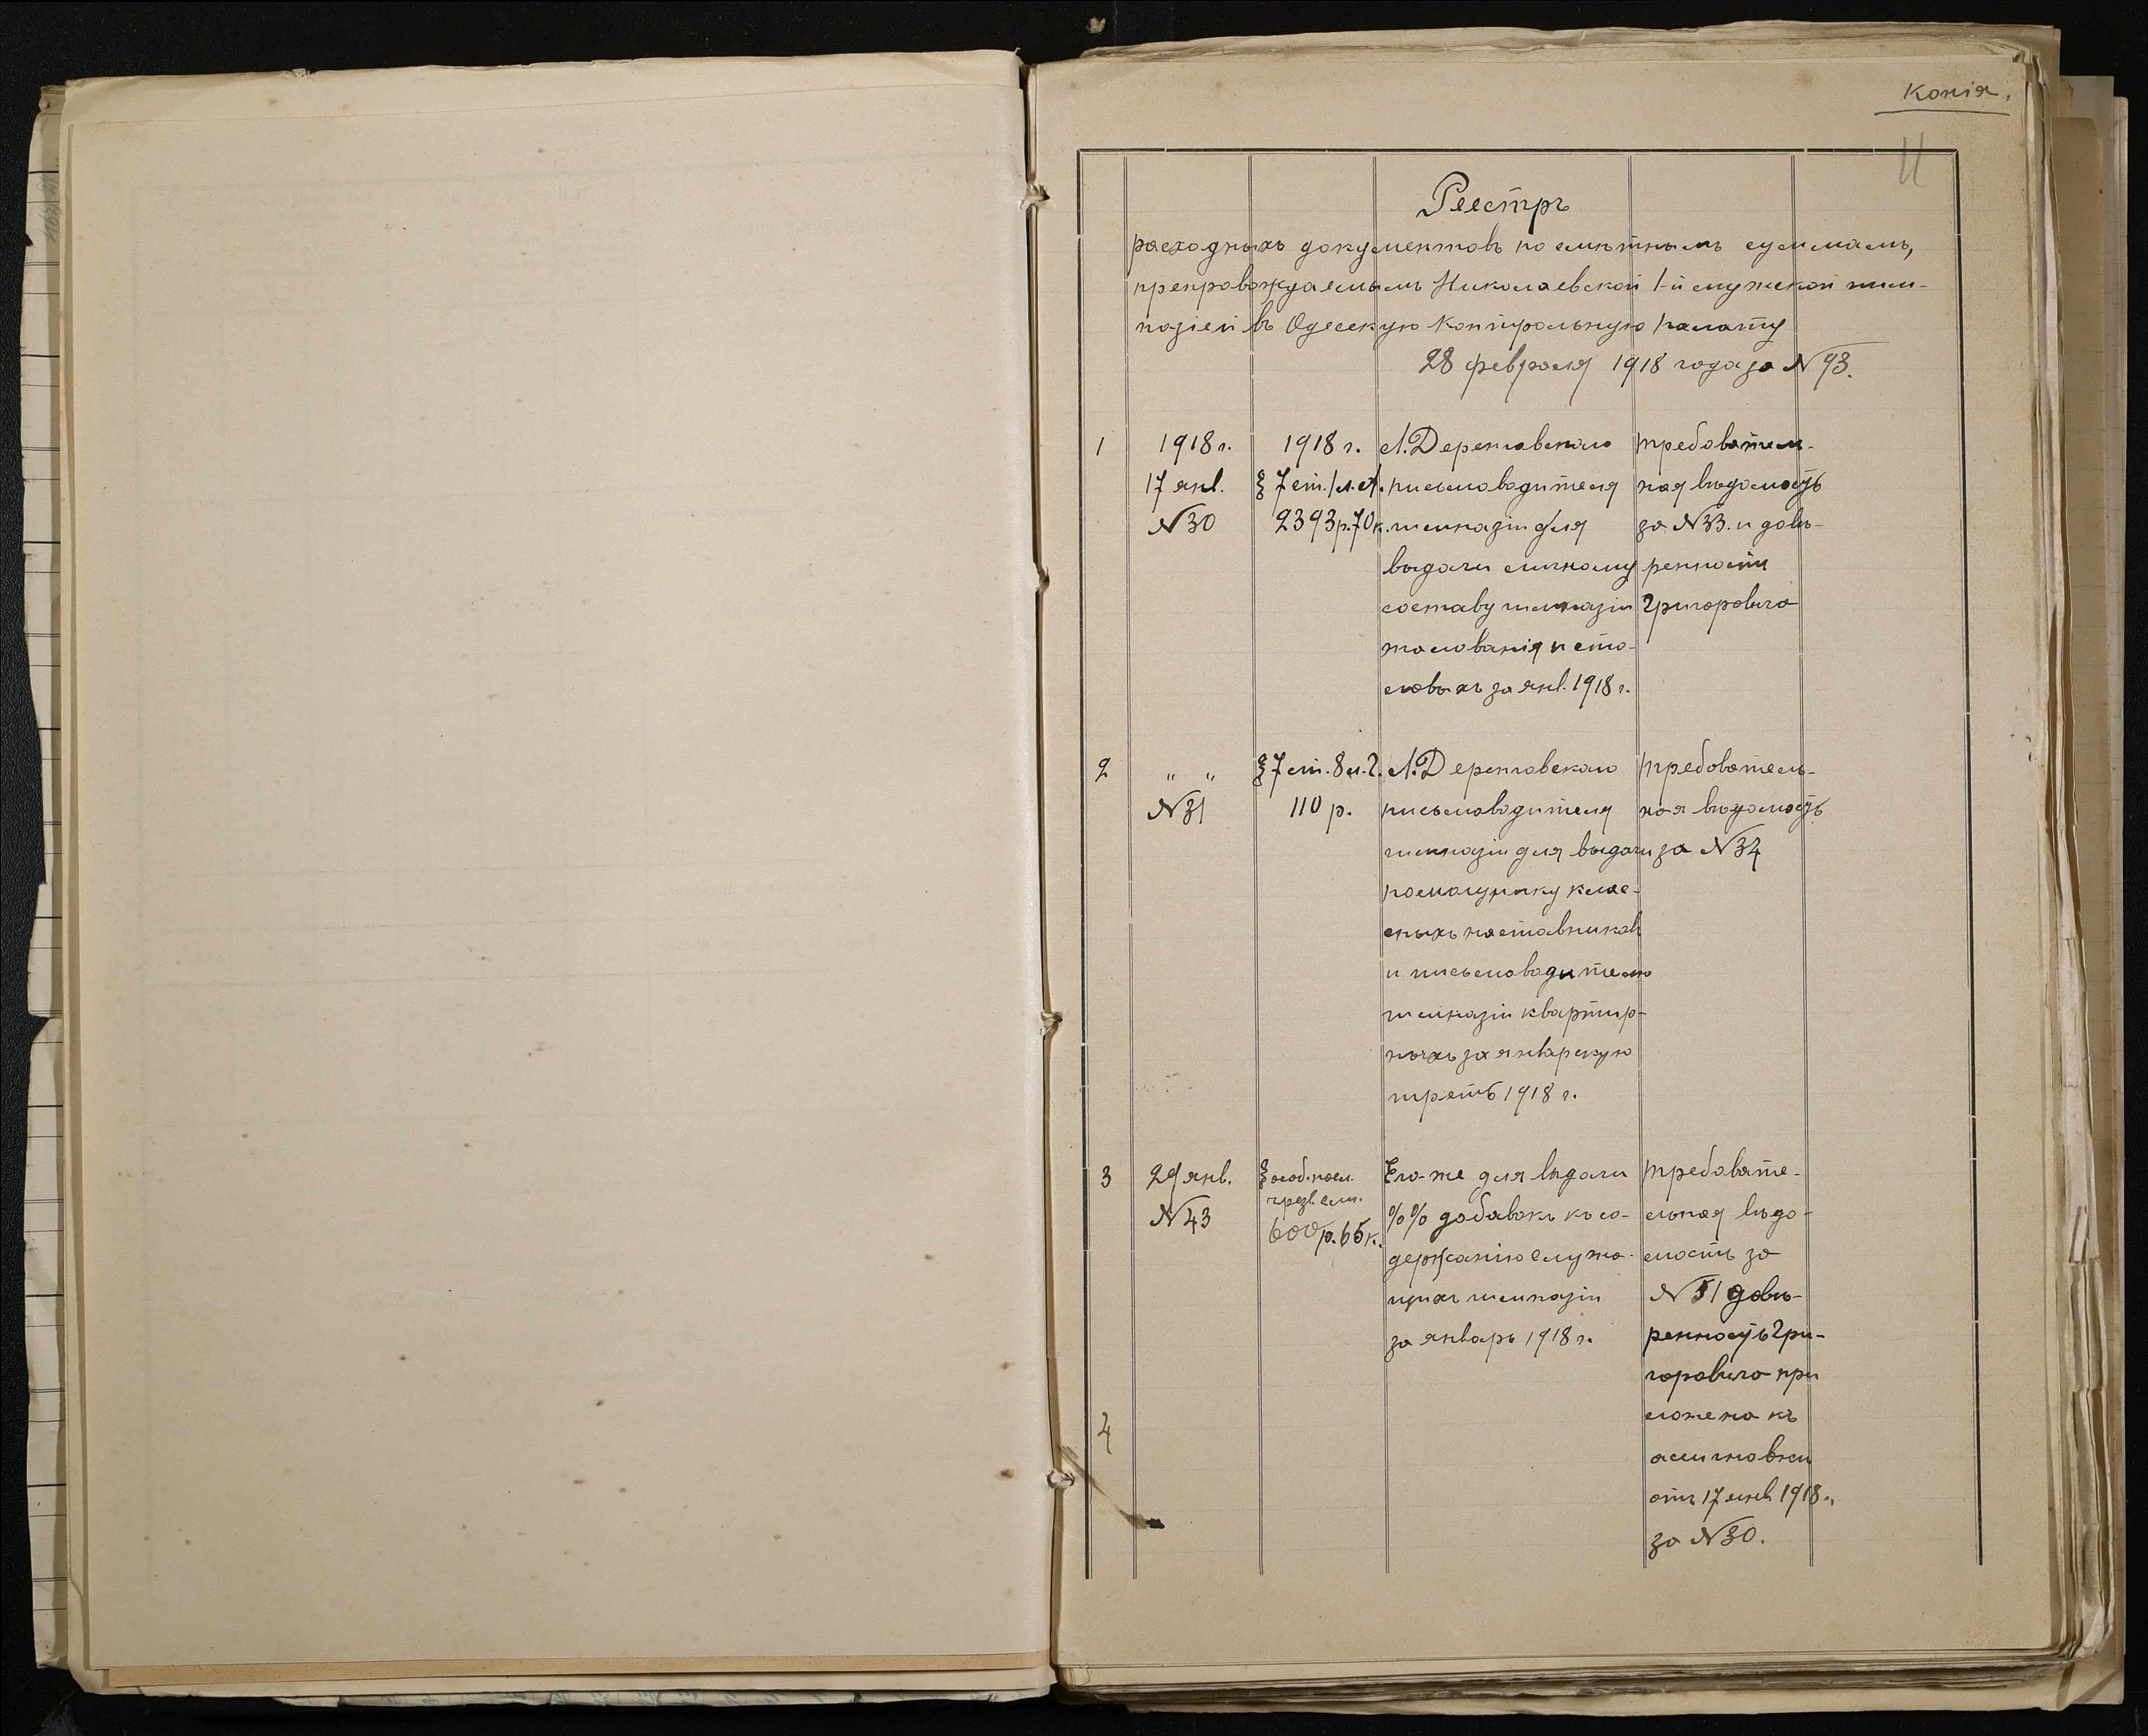 Копія.
11
Реестръ
расходныхъ документовъ по смѣтнымъ суммамъ,
препровождаемымъ Николаевской 1-й мужской гим-
назіей въ Одесскую Контрольную палату
28 февраля 1918 года за № 93.
1
1918 г.
17 янв.
№ 30
1918 г.
§ 7 ст. 1 л. А.
2393 р. 70 к.
письмоводителя
гимназіи для
выдачи личному
составу гимназіи
жалованія и сто-
ловыхъ за янв. 1918 г.
требователь-
ная вѣдомость
за № 33. и довѣ-
ренности
Григоровича
2
" "
№ 31
§ 7 ст. 8 л. 2.
110 р.
письмоводителя
гимназіи для выдачи
помощнику клас-
сныхъ наставниковъ
и письмоводителю
гимназіи квартир-
ныхъ за январскую
треть 1918 г.
требователь-
ная вѣдомость
за № 34
3
29 янв.
№ 43
600 р. 65 к.
Его-же для выдачи
%% добавокъ къ со-
держанію служа-
щихъ гимназіи
за январь 1918 г.
требовате-
льная вѣдо-
мость за
№ 51 довѣ-
ренность Гри-
горовича при
ложена къ
ассигновки
отъ 17 янв. 1918 г.
за № 30.
4